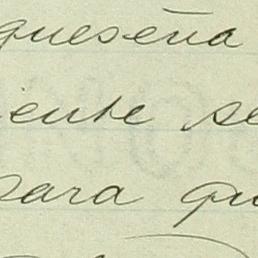 queseña
iente se
para qu